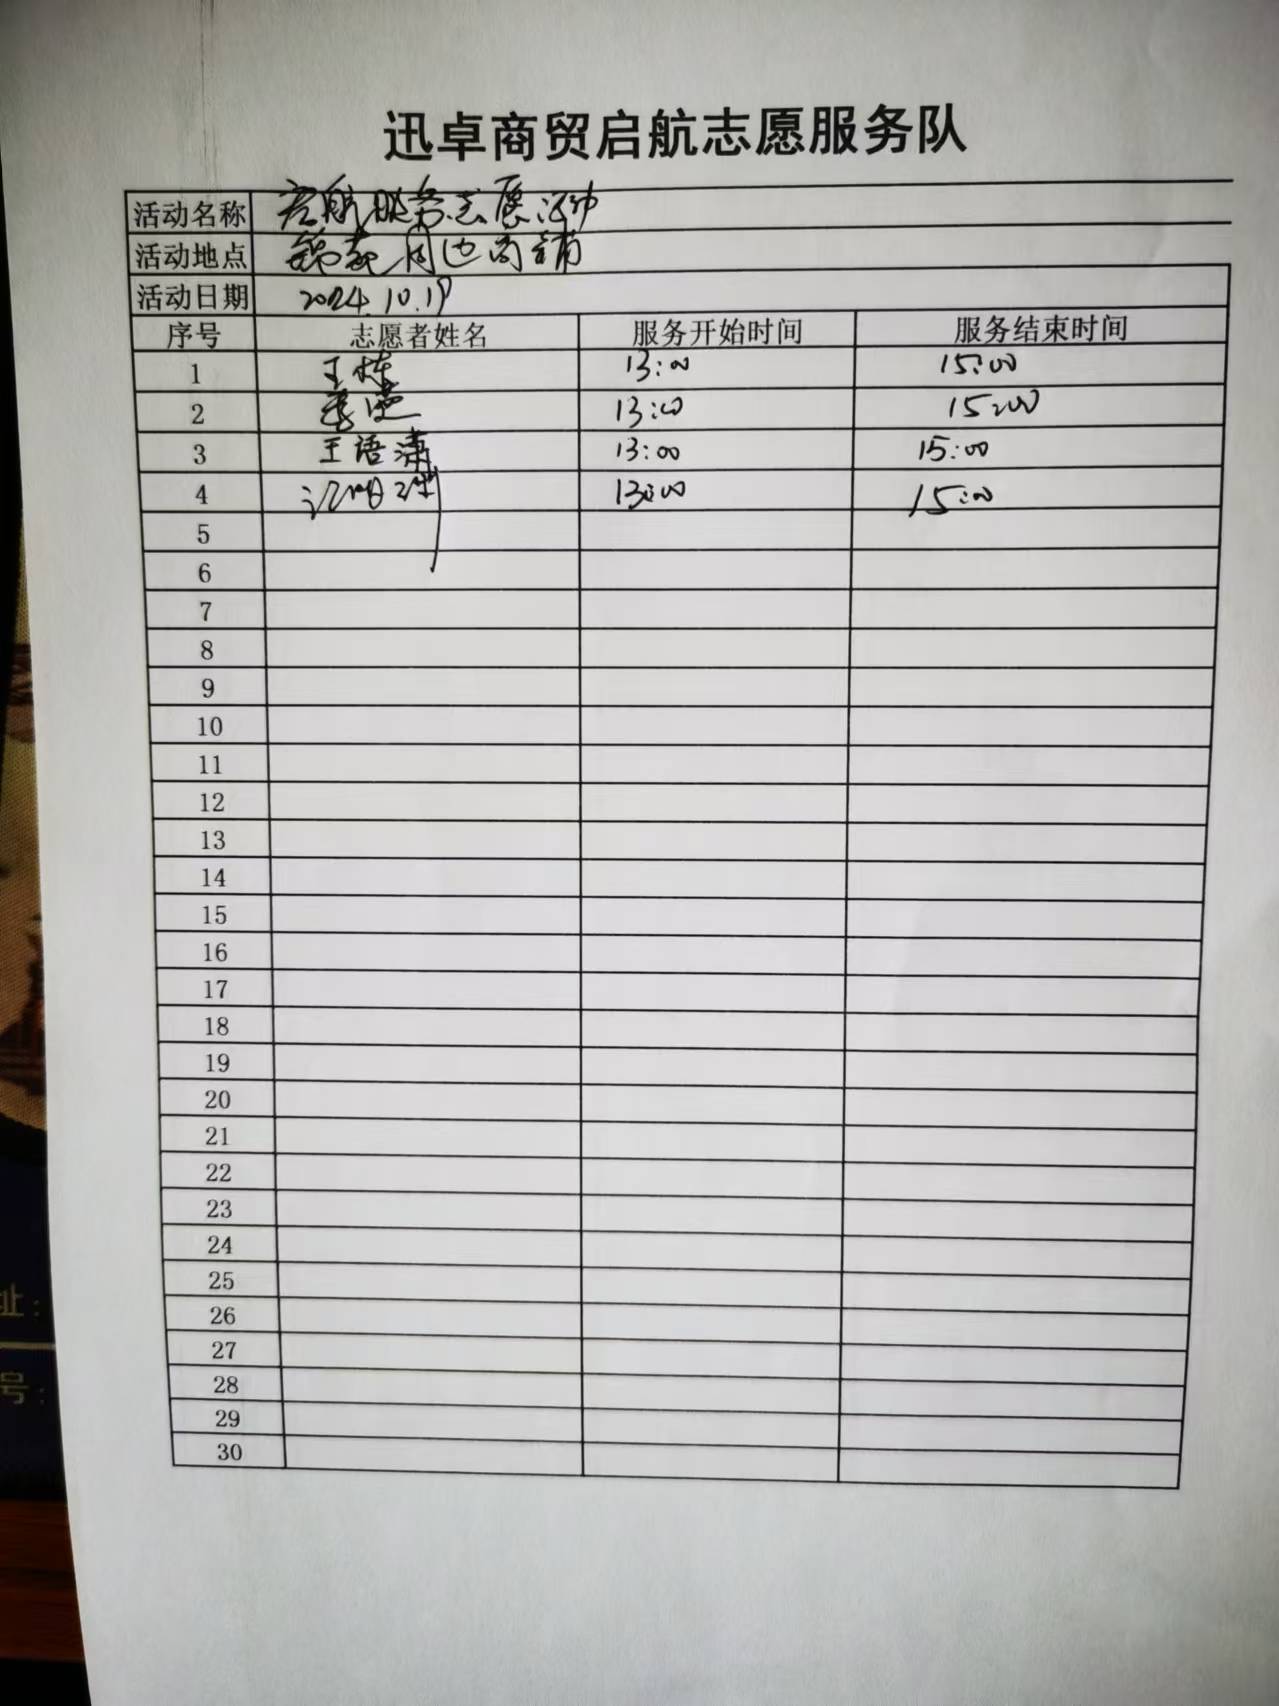 迅卓商贸启航志愿服务队
活动名称 启航服务志愿活动
活动地点 锦苑周边商铺
活动日期 2024.10.19
序号 志愿者姓名 服务开始时间 服务结束时间
1 王栋 13:00 15:00
2 13:00 15:00
3 王语潇 13:00 15:00
4 13:00 15:00
5
6
7
8
9
10
11
12
13
14
15
16
17
18
19
20
21
22
23
24
25
26
27
28
29
30
址:
号: